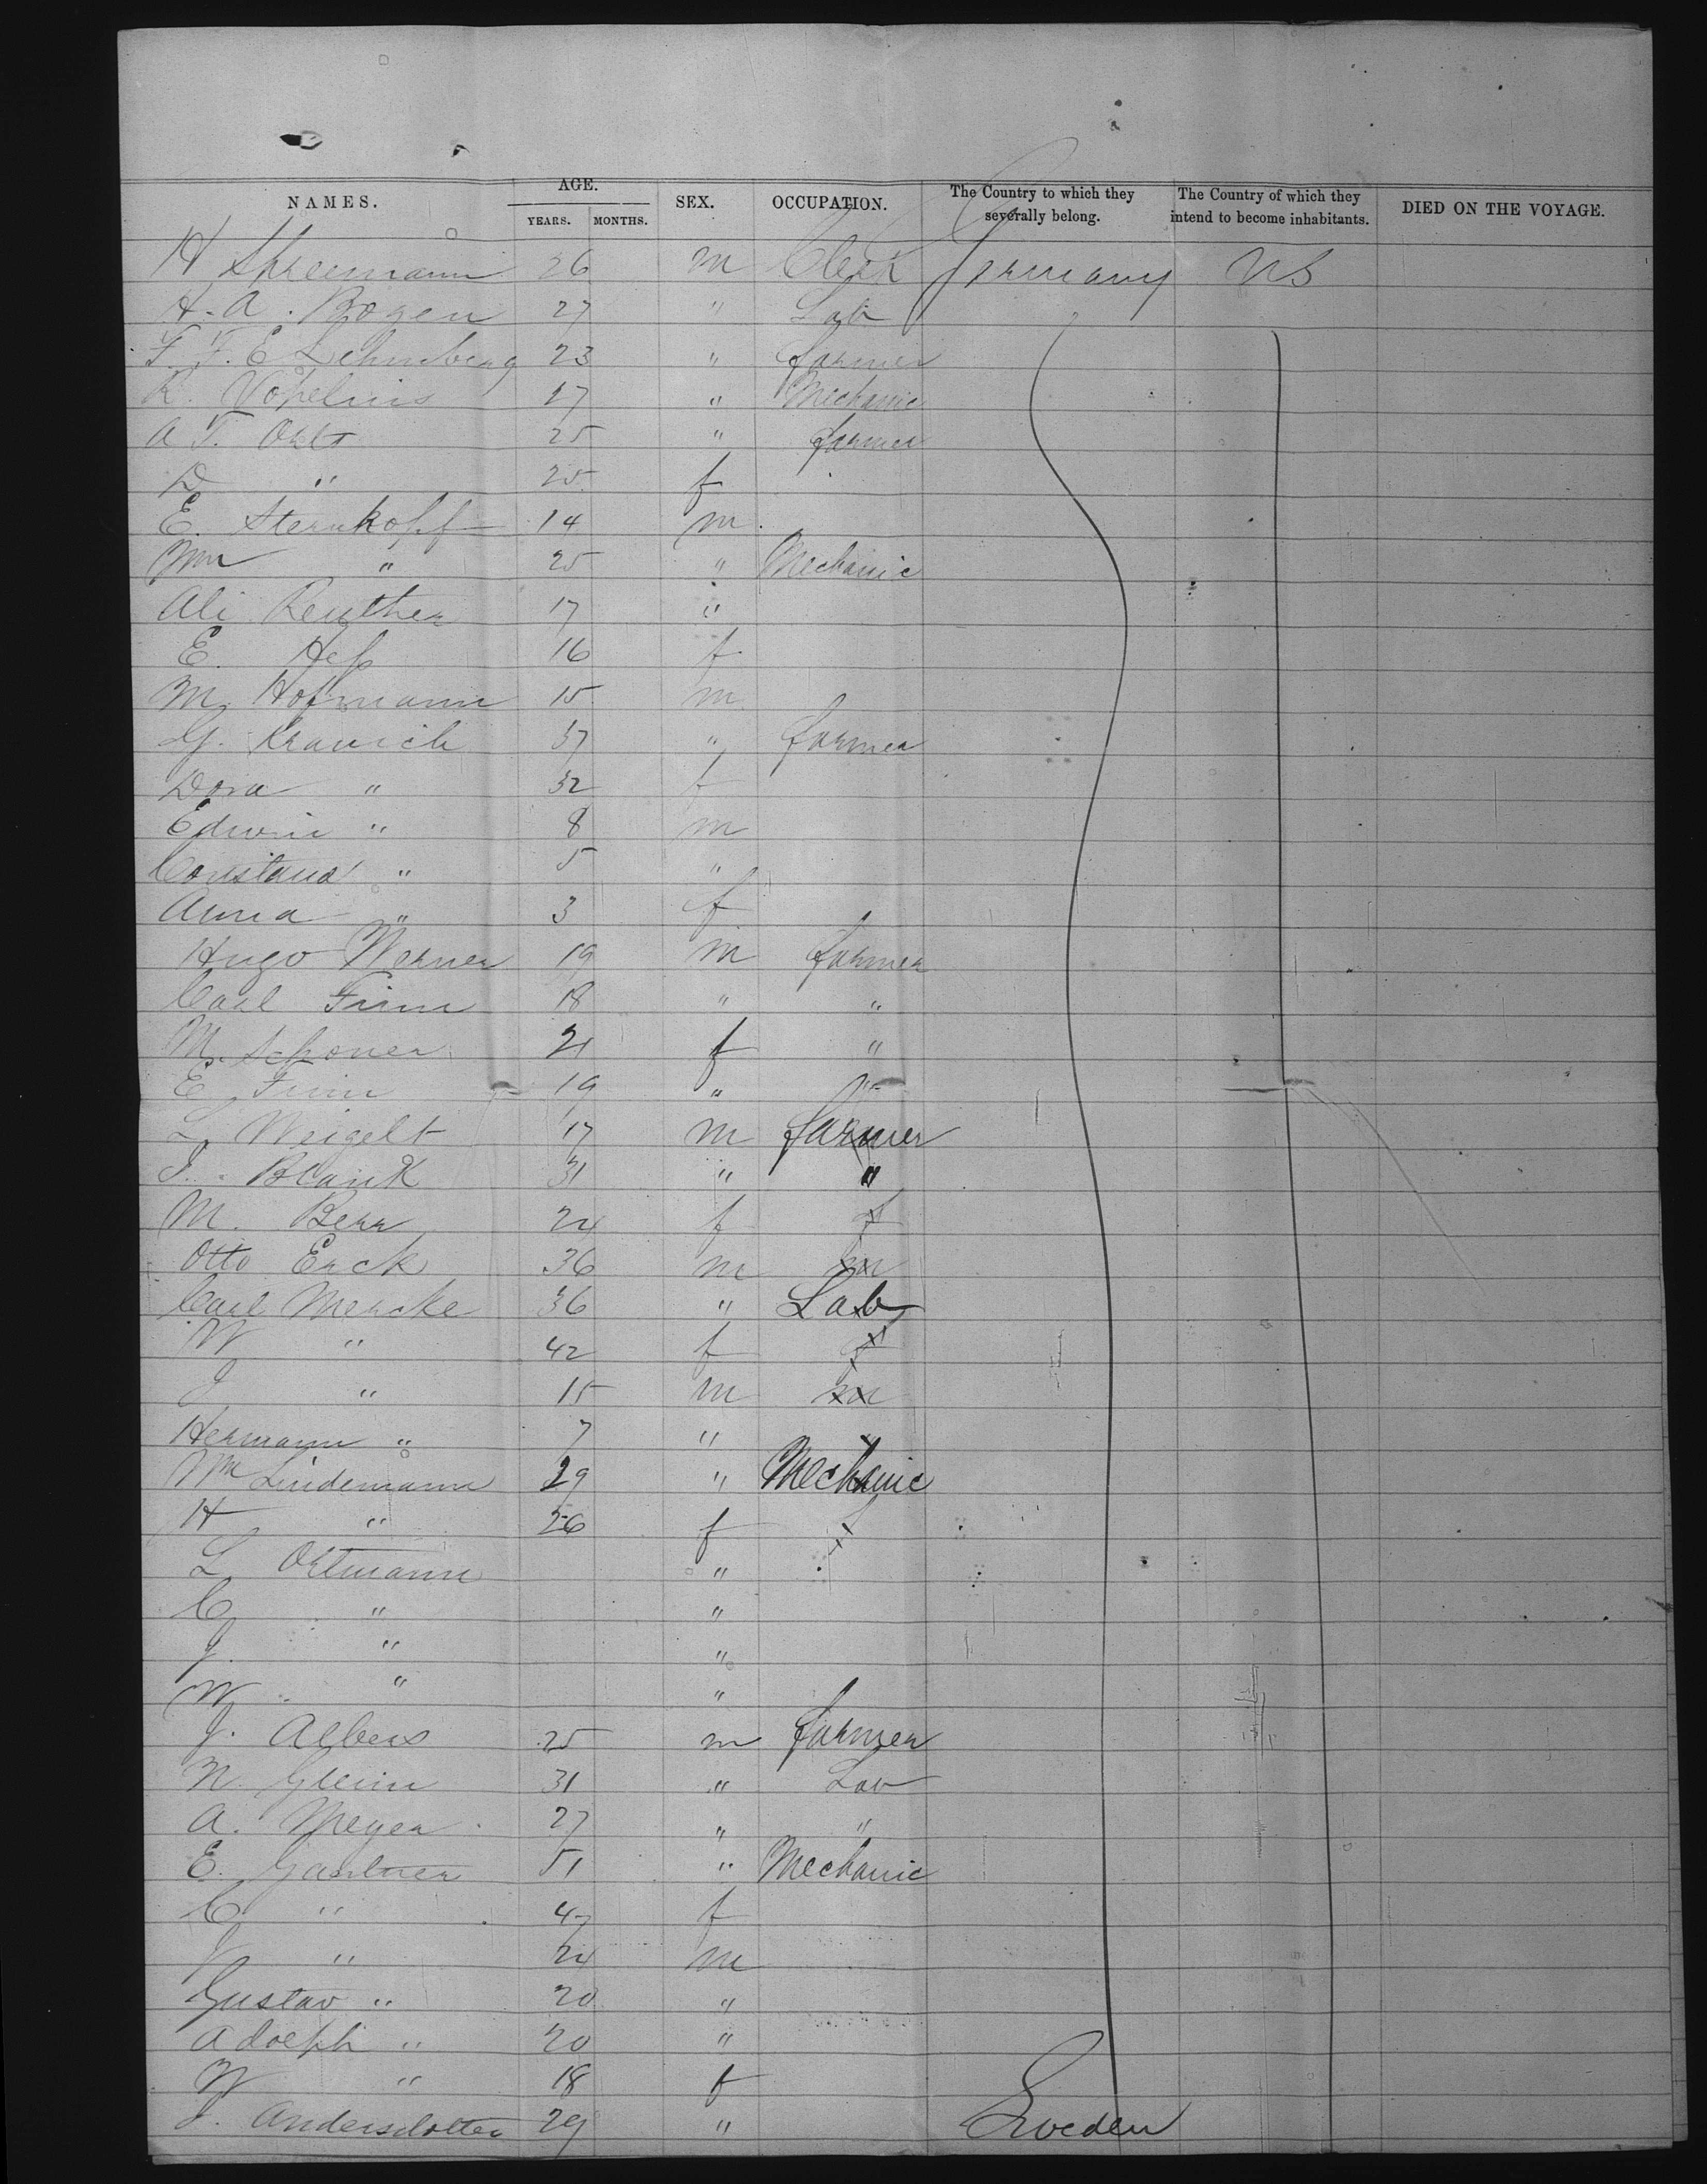 NAMES. AGE. YEARS. MONTHS. SEX. OCCUPATION. The Country to which they severally belong. The Country of which they intend to become inhabitants. DIED ON THE VOYAGE.
H 26 m Clerk Germany US
H. A. Bogen 27 " Lab
F. F. E. Lehmberg 23 " farmer
R. Vopelius 17 " Mechanic
A F. 25 " farmer
D " 25 f
E. Sternkopf 14 m
Wm " 25 " Mechanic
Ali Reuther 17 "
E. Heß 16 f
M. Hofmann 15 m
G. Kranich 37 " farmer
Dora " 32 f
Edwin " 8 m
Constand " 5 "
Anna " 3 f
Hugo Werner 19 m farmer
Carl Finn 18 " "
M. Schoner 21 f "
E. Finn 19 " "
L. Weigelt 17 m farmer
J. Blank 31 " "
M. Berr 24 f f
Otto Erck 36 m m
Carl Mencke 36 " Lab
W " 42 f f
J " 15 m m
Hermann " 7 " "
Wm Lindemann 29 " Mechanic
H " 26 f f
L Ortmann "
C " "
J. " "
W " "
J. Albers 25 m farmer
N. Glenn 31 " Lab
A. Meyer 27 " "
E. Gartner 51 " Mechanic
C " 47 f
J " 24 m
Gustav " 20 "
Adolph " 20 "
W " 18 f
J. Andersdotter 29 " Sweden